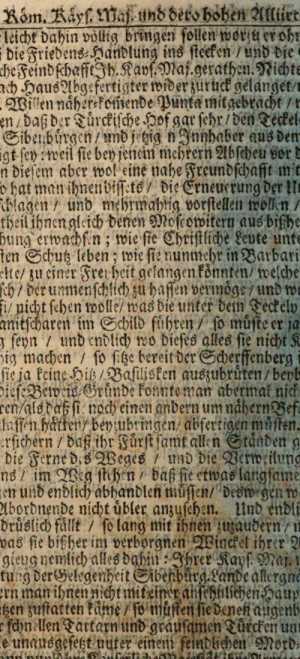 Röm. Käys. Maj. und dero hohen Alliirt
leicht dahin völlig bringen sollen worzu er ohn
die Friedens-Handlung ins stecken / und die
che Feindschafft Ih. Kays. Maj. gerathen. Nichts
ach Haus Abgefertigter wider zurück gelanget
Willen näher-komende Puncta mitgebracht /
en / daß der Türckische Hof gar sehr / den Teckel
Sibenbürgen / und jetzig n Innhaber aus dem
igt sey: weil sie bey jenem mehrern Abscheu vor d
n diesem aber wol eine nahe Freundschafft in t
o hat man ihnen bißt / die Erneuerung der Un
chlagen / und mehrmahlig vorstellen wollen /
theil ihnen gleich denen Moscowitern aus bißhe
hung erwachsen ; wie sie Christliche Leute unte
sten Schutz leben ; wie sie nunmehr in Barbari
elte / zu einer Freyheit gelangen könnten / welche
sch / der unmenschlich zu hassen vermöge / und wo
si / nicht sehen wolle / was die unter dem Teckely
anitscharen im Schild führen / so müste er ja
g seyn / und endlich wo dieses alles sie nicht K
nig machen / so sitze bereit der Scherffenberg
sie ja keine Hitz / Basilisken auszubrüten / beyb
diese Beweis-Gründe konnte man abermal nicht
ren / als daß si noch einen andern um nähern Bef
lassen hätten / beyzubringen / abfertigen müsten.
ersichern / daß ihr Fürst samt allen Ständen g
die Ferne des Weges / und die Verweilung
ns / im Weg stehen / daß sie etwas langsame
gen und endlich abhandlen müssen / deswegen w
Abordnende nicht übler anzusehen. Und endlich
drüslich fällt / so lang mit ihnen zuzaudern / n
was sie bißher im verborgnen Winckel ihrer A
gieng nemlich alles dahin: Ihrer Kays. Maj.
tung der Gelegenheit Sibenbürg. Lande allergne
ern man ihnen nicht mit einer ansehnlichen Haup
tzen zustatten käme / so müsten sie denen augenb
r schnellen Tartarn und grausamen Türcken un
e unausgesetzt unter einem feindlichen Mord